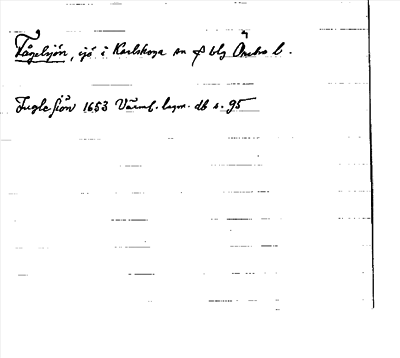 Fågelsjön, sjö i Karlskoga sn o blg Örebro l.
Fugle siön 1653 Värml. lagm. db s. 95